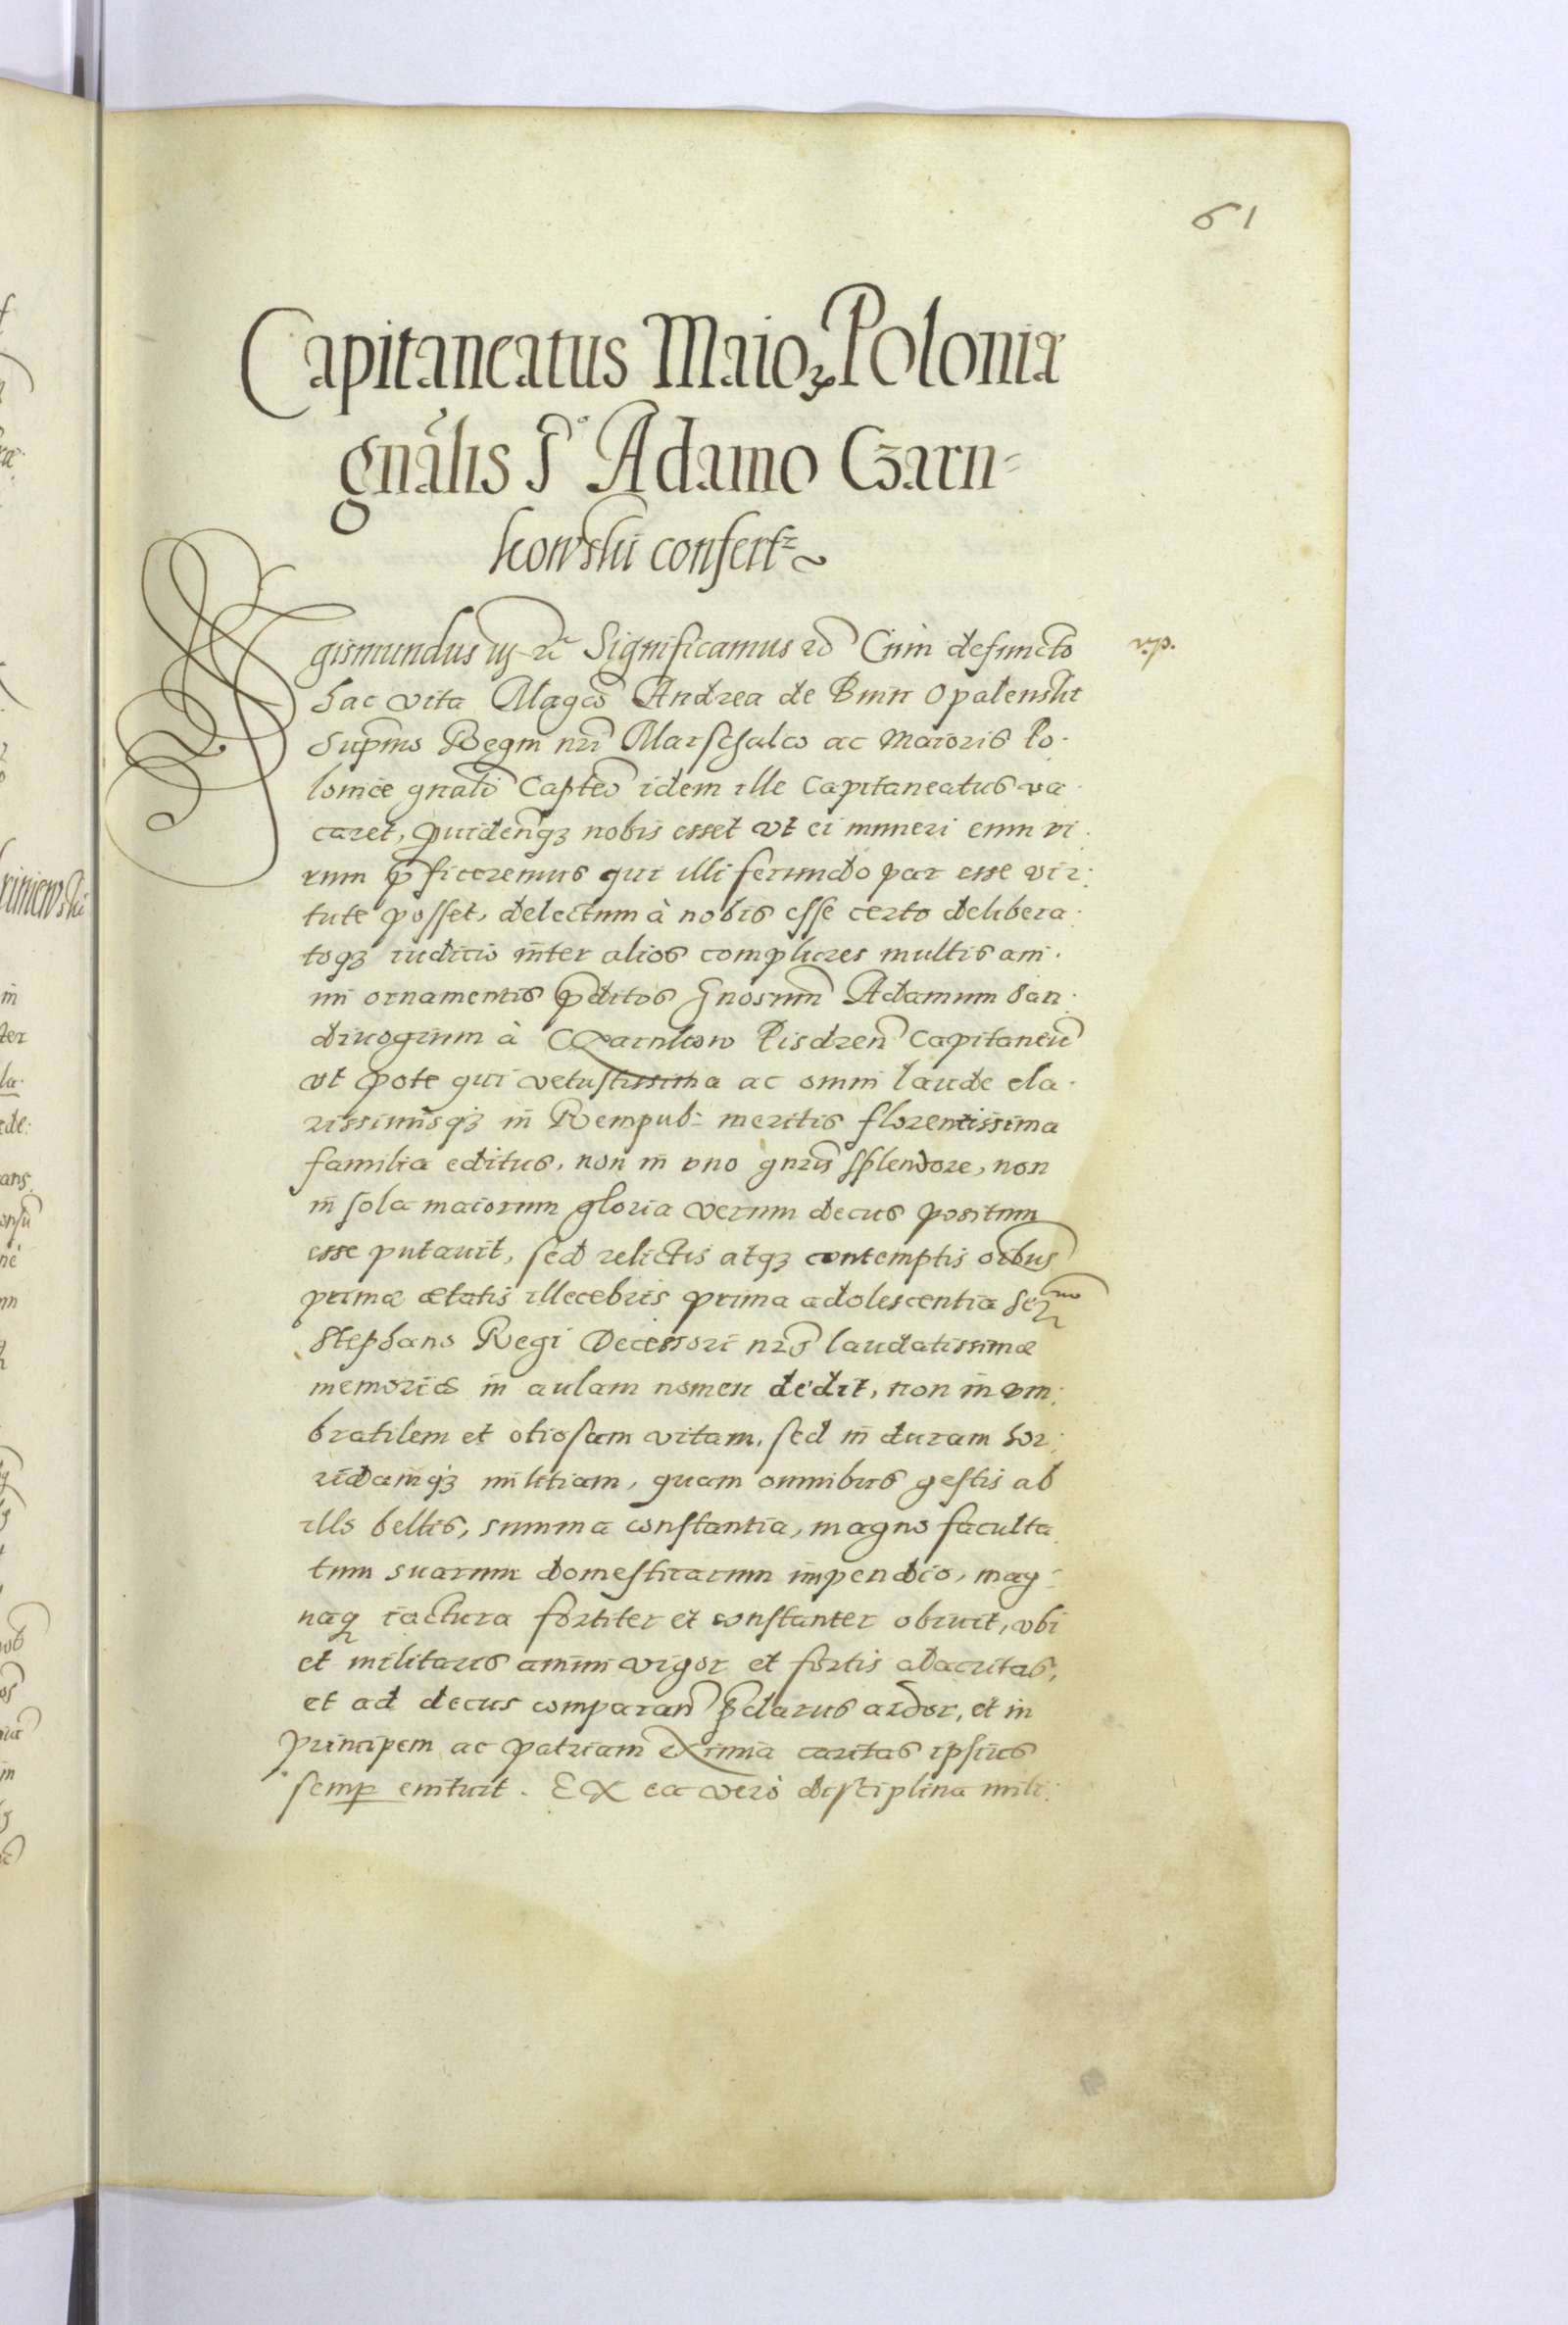 61
Capitaneatus Maioꝝ Polonia
gnãlis G° Adamo Czarn=
kowski confertz
Sigismundus iij etc Significamus etc Cum defuncto
hac vita Magco Andrea de Bnin Opalenski
Supmo Regni nri Marschalco ac Maioris Po.
loniæ gnali Capteo idem ille Capitaneatus va.
caret, Quidemqꝫ nobis esset vt ei muneri eum vi.
rum pficeremus qui illi ferundo par esse vir:
tute posset, delectum à nobis esse certo delibera.
toqꝫ iuditio inter alios complures multis ani.
mi ornamentis pditos Gnosum Adamum San.
divogium à Czarnkow Pisdren Capitaneũ
vt pote qui vetustissima ac omni laude cla.
rissimisqꝫ in Rempub: meritis florentissima
familia editus, non in vno gnris splendore, non
in sola maiorum gloria verum decus positum
esse putavit, sed relictis atqꝫ contemptis oĩbus
primæ ætatis illecebris prima adolescentia Sermo
Stephano Regi Decessori nro laudatissimæ
memoriæ in aulam nomen dedit, non in vm:
bratilem et otiosam vitam, sed in duram hor:
ridamqꝫ militiam, quam omnibus gestis ab
illo bellis, summa constantia, magno faculta.
tum suarum domesticarum impendio, mag:
naq iactura fortiter et constanter obiuit, vbi
et militaris animi vigor et fortis alacritas,
et ad decus comparan pclarus ardor, et in
Principem ac patriam eximia caritas ipsius
semp enituit. Ex ea verò disciplina mili: